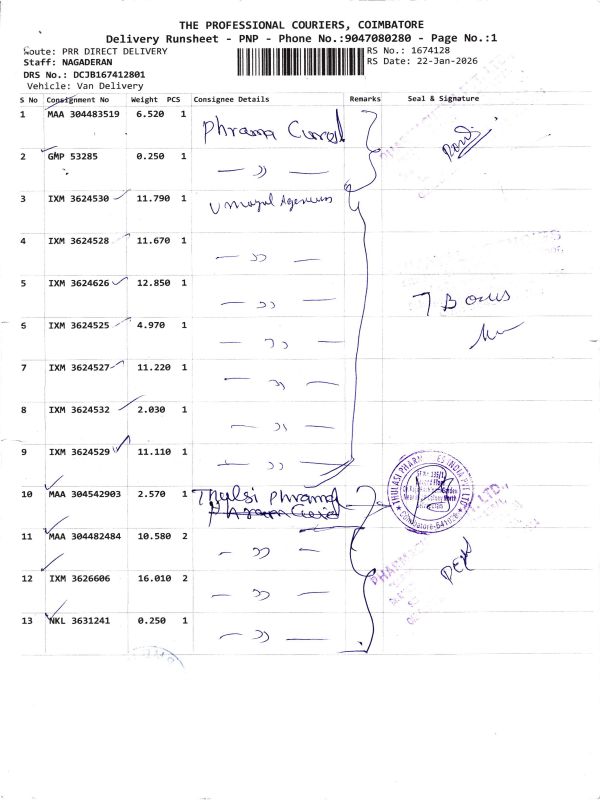 THE PROFESSIONAL COURIERS, COIMBATORE
Delivery Runsheet - PNP - Phone No.:9047080280 - Page No.:1
Route: PRR DIRECT DELIVERY
RS No.: 1674128
Staff: NAGADERAN
RS Date: 22-Jan-2026
DRS No.: DCJB167412801
Vehicle: Van Delivery
S No Consignment No Weight PCS Consignee Details Remarks Seal & Signature
1 MAA 304483519 6.520 1 Phrama Cured
2 GMP 53285 0.250 1 — ,, —
3 IXM 3624530 11.790 1
4 IXM 3624528 11.670 1 — ,, —
5 IXM 3624626 12.850 1 — ,, —
7 Boxes
6 IXM 3624525 4.970 1 — ,, —
7 IXM 3624527 11.220 1 — ,, —
8 IXM 3624532 2.030 1 — ,, —
9 IXM 3624529 11.110 1 — ,, —
10 MAA 304542903 2.570 1 Thulsi Phrama
THULASI PHARM ES INDIA PVT LTD
Coimbatore-641028
11 MAA 304482484 10.580 2 — ,, —
12 IXM 3626606 16.010 2 — ,, —
13 NKL 3631241 0.250 1 — ,, —